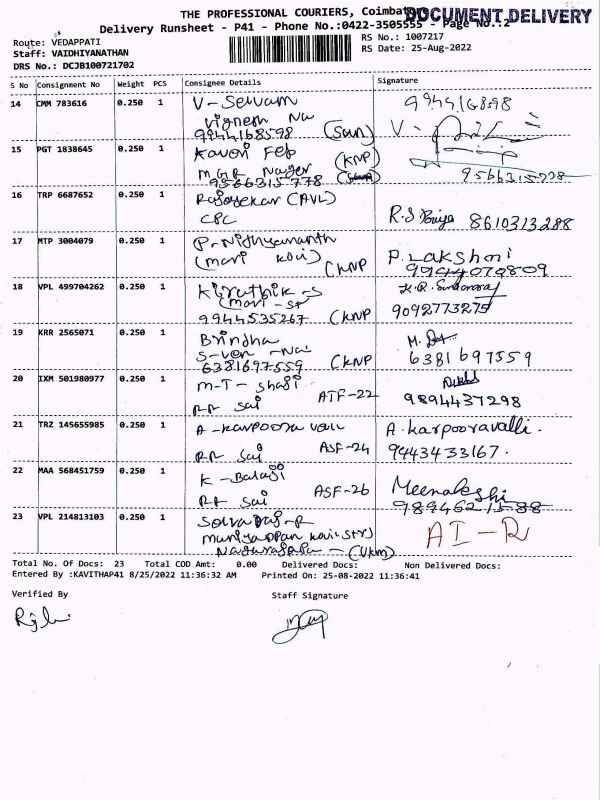 THE PROFESSIONAL COURIERS, Coimbatore
DOCUMENT DELIVERY
Delivery Runsheet - P41 - Phone No.:0422-3505555 - Page No.:2
Route: VEDAPPATI
RS No.: 1007217
Staff: VAIDHIYANATHAN
RS Date: 25-Aug-2022
DRS No.: DCJB100721702
S No Consignment No Weight PCS Consignee Details Signature
14 CMM 783616 0.250 1 V-Selvam 9944168598
Vignesh Na V-
9944168598 (Sun)
15 PGT 1838645 0.250 1 Kaveri Feb
(KNP)
MGR Nager
9566315778 9566315778
16 TRP 6687652 0.250 1 Rajasekar (AVL)
CPC R.S Priya 8610313288
17 MTP 3004079 0.250 1 P-Nidhyamanth P. Lakshmi
(mari kovi) CKNP 9944070809
18 VPL 499704262 0.250 1 Kiruthik-S
(mari-St 9092773275
9944535267 CKNP
19 KRR 2565071 0.250 1 Brindha M.
S-ven-Na
6381697559 CKNP 6381697559
20 IXM 501980977 0.250 1 M-T-Shaji
RR Sai ATF-22 9894437298
21 TRZ 145655985 0.250 1 A-Karpoora valli A.karpooravalli.
RR Sai ASF-24 9443433167.
22 MAA 568451759 0.250 1 K-Balaji Meenakshi
RR Sai ASF-26 9894621588
23 VPL 214813103 0.250 1 Selvaraj-R AI-R
muniyappan kovi str)
Nagarajapu- (Vkm)
Total No. Of Docs: 23 Total COD Amt: 0.00 Delivered Docs: Non Delivered Docs:
Entered By :KAVITHAP41 8/25/2022 11:36:32 AM Printed On: 25-08-2022 11:36:41
Verified By Staff Signature